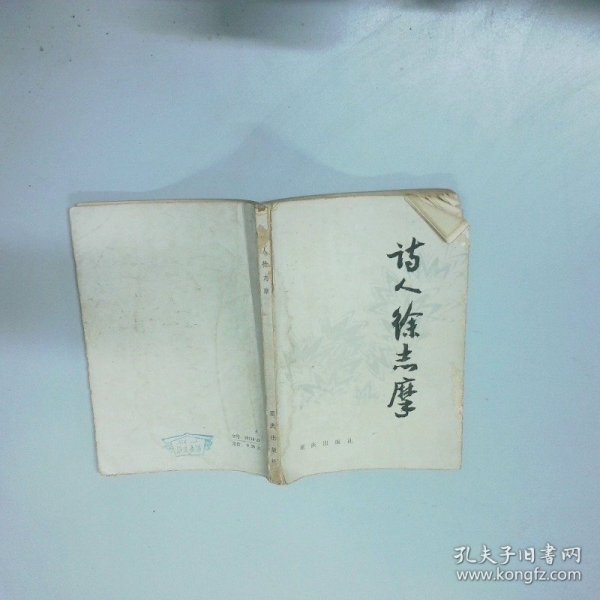 诗人徐志摩
重庆出版社
人徐志摩
重庆出版社
孔夫子旧书网
www.kongfz.com